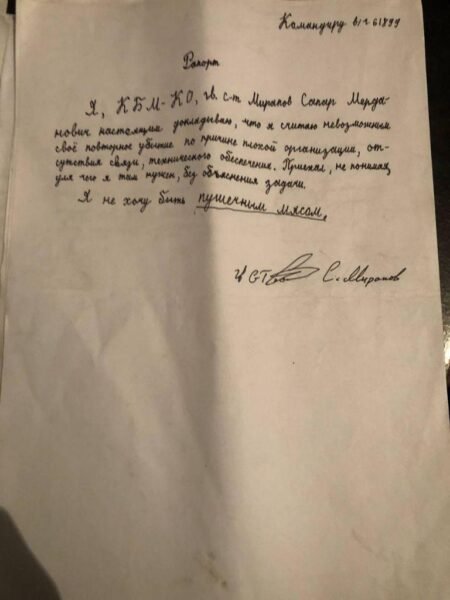 Командиру в/ч 61899
Рапорт
Я, КБМ-КО, гв. с-т Мирапов Сапар Мерда-
нович настоящим докладываю, что я считаю невозможным
своё повторное убытие по причине плохой организации, от-
сутствия связи, технического обеспечения. Приехал, не понимая
для чего я там нужен, без объяснения задачи.
Я не хочу быть пушечным мясом.
С. Мирапов